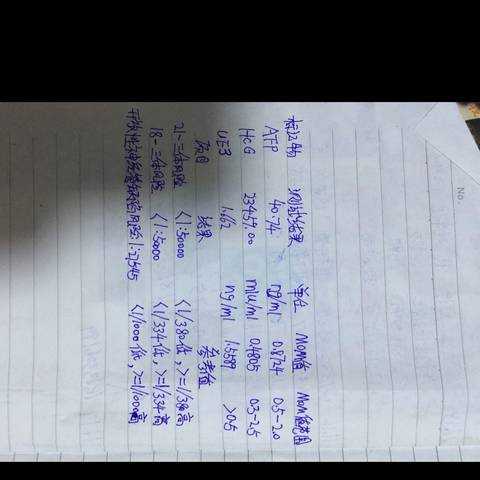 标记物 测试结果 单位 MoM值 MoM值范围
AFP 40.74 ng/ml 0.8724 0.5-2.0
HCG 23459.00 mIu/ml 0.4805 0.3-2.5
UE3 1.662 ng/ml 1.5589 >0.5
项目 结果 参考值
21-三体风险 <1:50000 <1/380低,>=1/380高
18-三体风险 <1:50000 <1/334低,>=1/334高
开放性神经管缺陷风险 1:27545 <1/1000低,>=1/1000高
No.